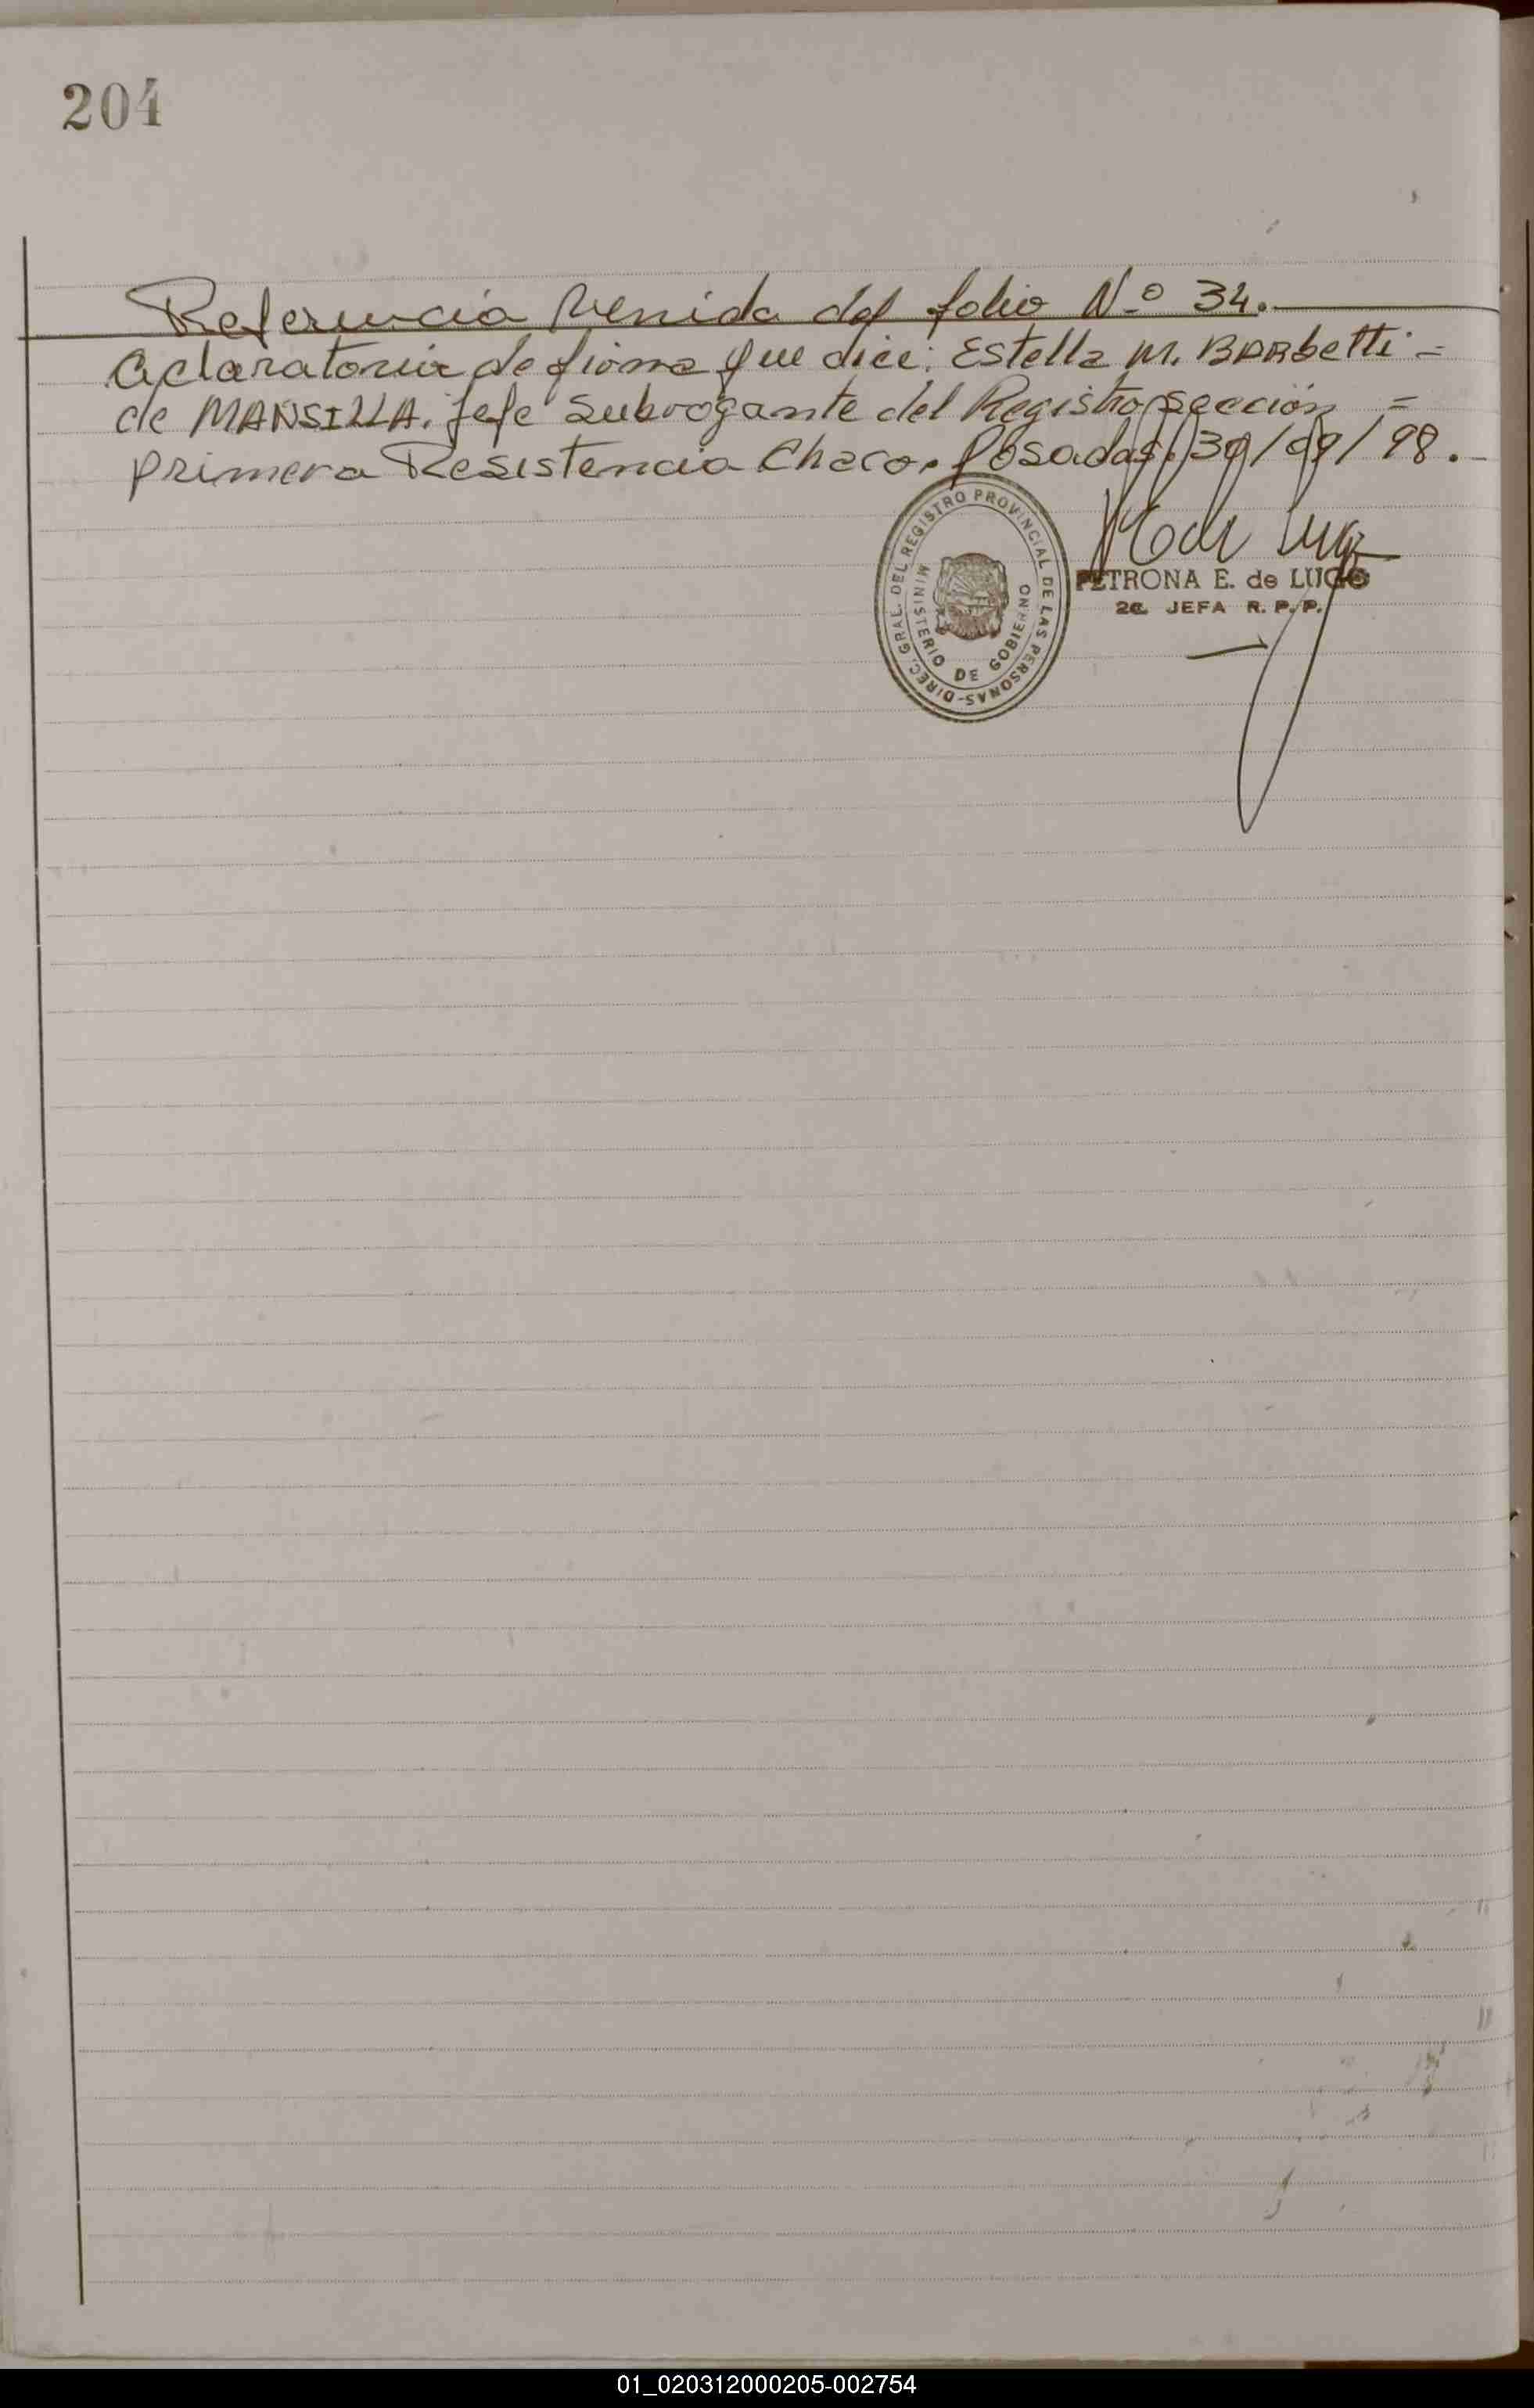 204
Referencia Venida del folio Nº 34.
aclaratoria de firma que dice: Estella M. BARbetti =
de MANSILLA. Jefe Subrogante del Registro sección =
primera Resistencia Chaco. Posadas. 30/09/98.-
DIREC. GRAL. DEL REGISTRO PROVINCIAL DE LAS PERSONAS-
MINISTERIO DE GOBIERNO
PETRONA E. de LUGO
2a. JEFA R. P. P.
01_020312000205-002754